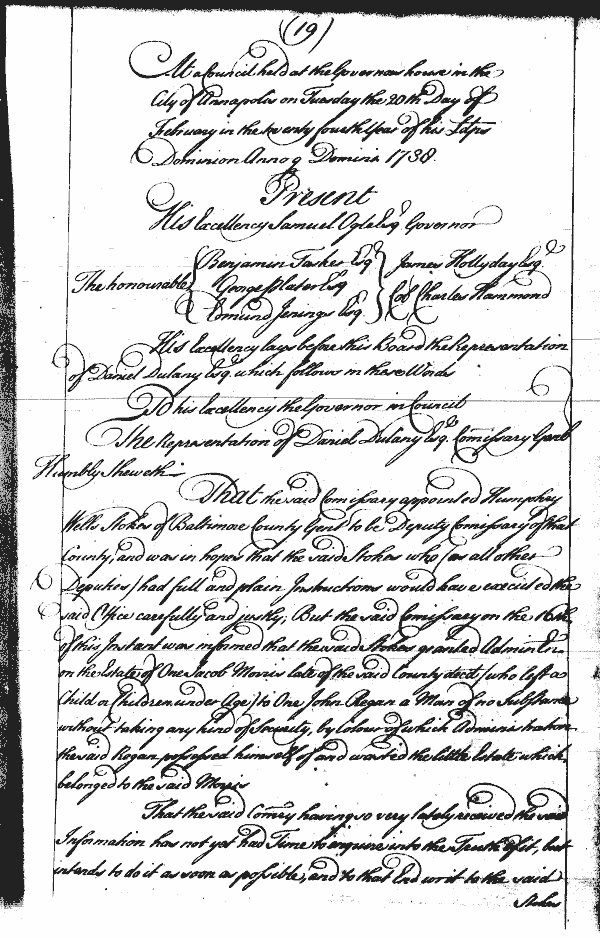 (19)
At a Council held at the Governors house in the
City of Annapolis on Tuesday the 20th Day of
February in the twenty fourth Year of his Ldps
Dominion Annoq Domini 1738.
Present
His Excellency Samuel Ogle Esqr Governor
The honourable { Benjamin Tasker Esqr } James Hollyday Esqr
George Plater Esq Col Charles Hammond
Edmund Jenings Esq
His Excellency lays before this Board the Representation
of Daniel Dulany Esqr which follows in these Words
To his Excellency the Governor in Council
The Representation of Daniel Dulany Esqr Comissary Genl
Humbly Sheweth
That the said Comissary appointed Humphrey
Wells Stokes of Baltimore County Gent to be Deputy Comissary of that
County, and was in hopes that the said Stokes who (as all other
Deputies) had full and plain Instructions would have executed the
said Office carefully and justly, But the said Comissary on the 16th
of this Instant was informed that the said Stokes granted Admin
on the Estate of One Jacob Morris late of the said County decd (who left a
Child or Children under Age) to One John Regan a Man of no Substance
without taking any kind of Security, by Colour of which Administration
the said Regan possessed himself of and wasted the little Estate which
belonged to the said Morris
That the said Comry having so very lately received the said
Information has not yet had Time to enquire into the Truth of it, but
intends to do it as soon as possible, and to that End writ to the said
Stokes